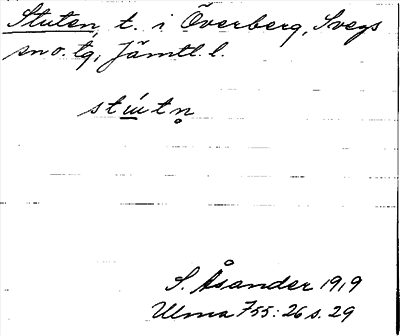 Stuten, t. i Överberg, Svegs
sn o. tg, Jämtl. l.
stútn̥
S. Åsander 1919
Ulma 755: 26 s. 29